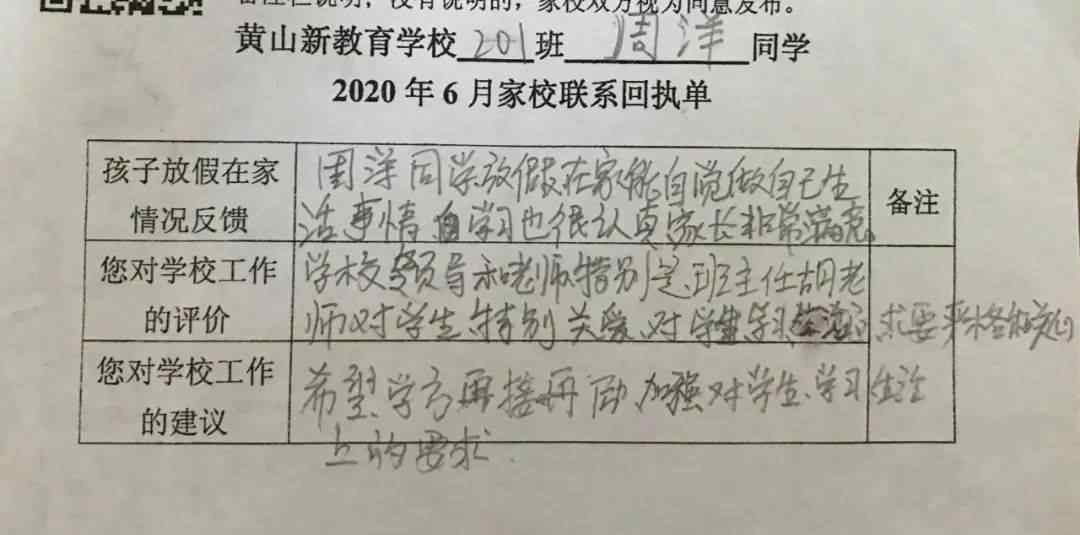 备注栏说明，没有说明的，家校双方视为同意发布。
黄山新教育学校201班周洋同学
2020年6月家校联系回执单
孩子放假在家
情况反馈
周洋同学放假在家能自觉做自己生
活事情 学习也很认真家长非常满意。
备注
您对学校工作
的评价
学校领导和老师特别是班主任胡老
师对学生特别关爱、对学生学习 求要严格
您对学校工作
的建议
希望学方再接再励加强对学生学习生活
上的要求